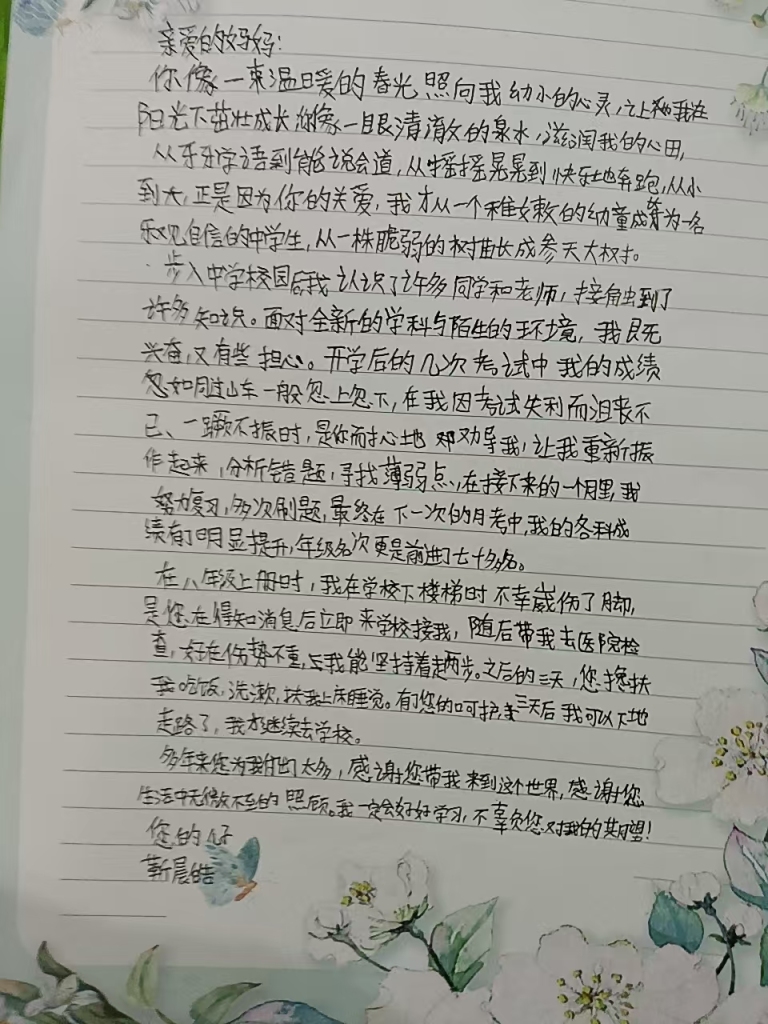 亲爱的妈妈：
你像一束温暖的春光照向我幼小的心灵，让我在
阳光下茁壮成长，你像一眼清澈的泉水，滋润我的心田，
从牙牙学语到能说会道，从摇摇晃晃到快乐地奔跑，从小
到大，正是因为你的关爱，我才从一个稚嫩的幼童成为一名
乐观自信的中学生，从一株脆弱的树苗长成参天大树。
步入中学校园后我认识了许多同学和老师，接触到了
许多知识。面对全新的学科与陌生的环境，我既
兴奋，又有些担心。开学后的几次考试中我的成绩
忽如同过山车一般忽上忽下，在我因考试失利而沮丧不
已、一蹶不振时，是你耐心地劝导我，让我重新振
作起来，分析错题，寻找薄弱点，在接下来的一个月里，我
努力复习，多次刷题，最终在下一次的月考中，我的各科成
绩有了明显提升，年级名次更是前进了七十多名。
在八年级上册时，我在学校下楼梯时不幸崴伤了脚，
是您在得知消息后立即来学校接我，随后带我去医院检
查，好在伤势不重，我能坚持着走两步。之后的三天，您搀扶
我吃饭，洗漱，扶我上床睡觉。有了您的呵护，三天后我可以下地
走路了，我才继续去学校。
多年来您为我付出太多，感谢您带我来到这个世界，感谢您
生活中无微不至的照顾。我一定会好好学习，不辜负您对我的期望！
您的
靳晨皓